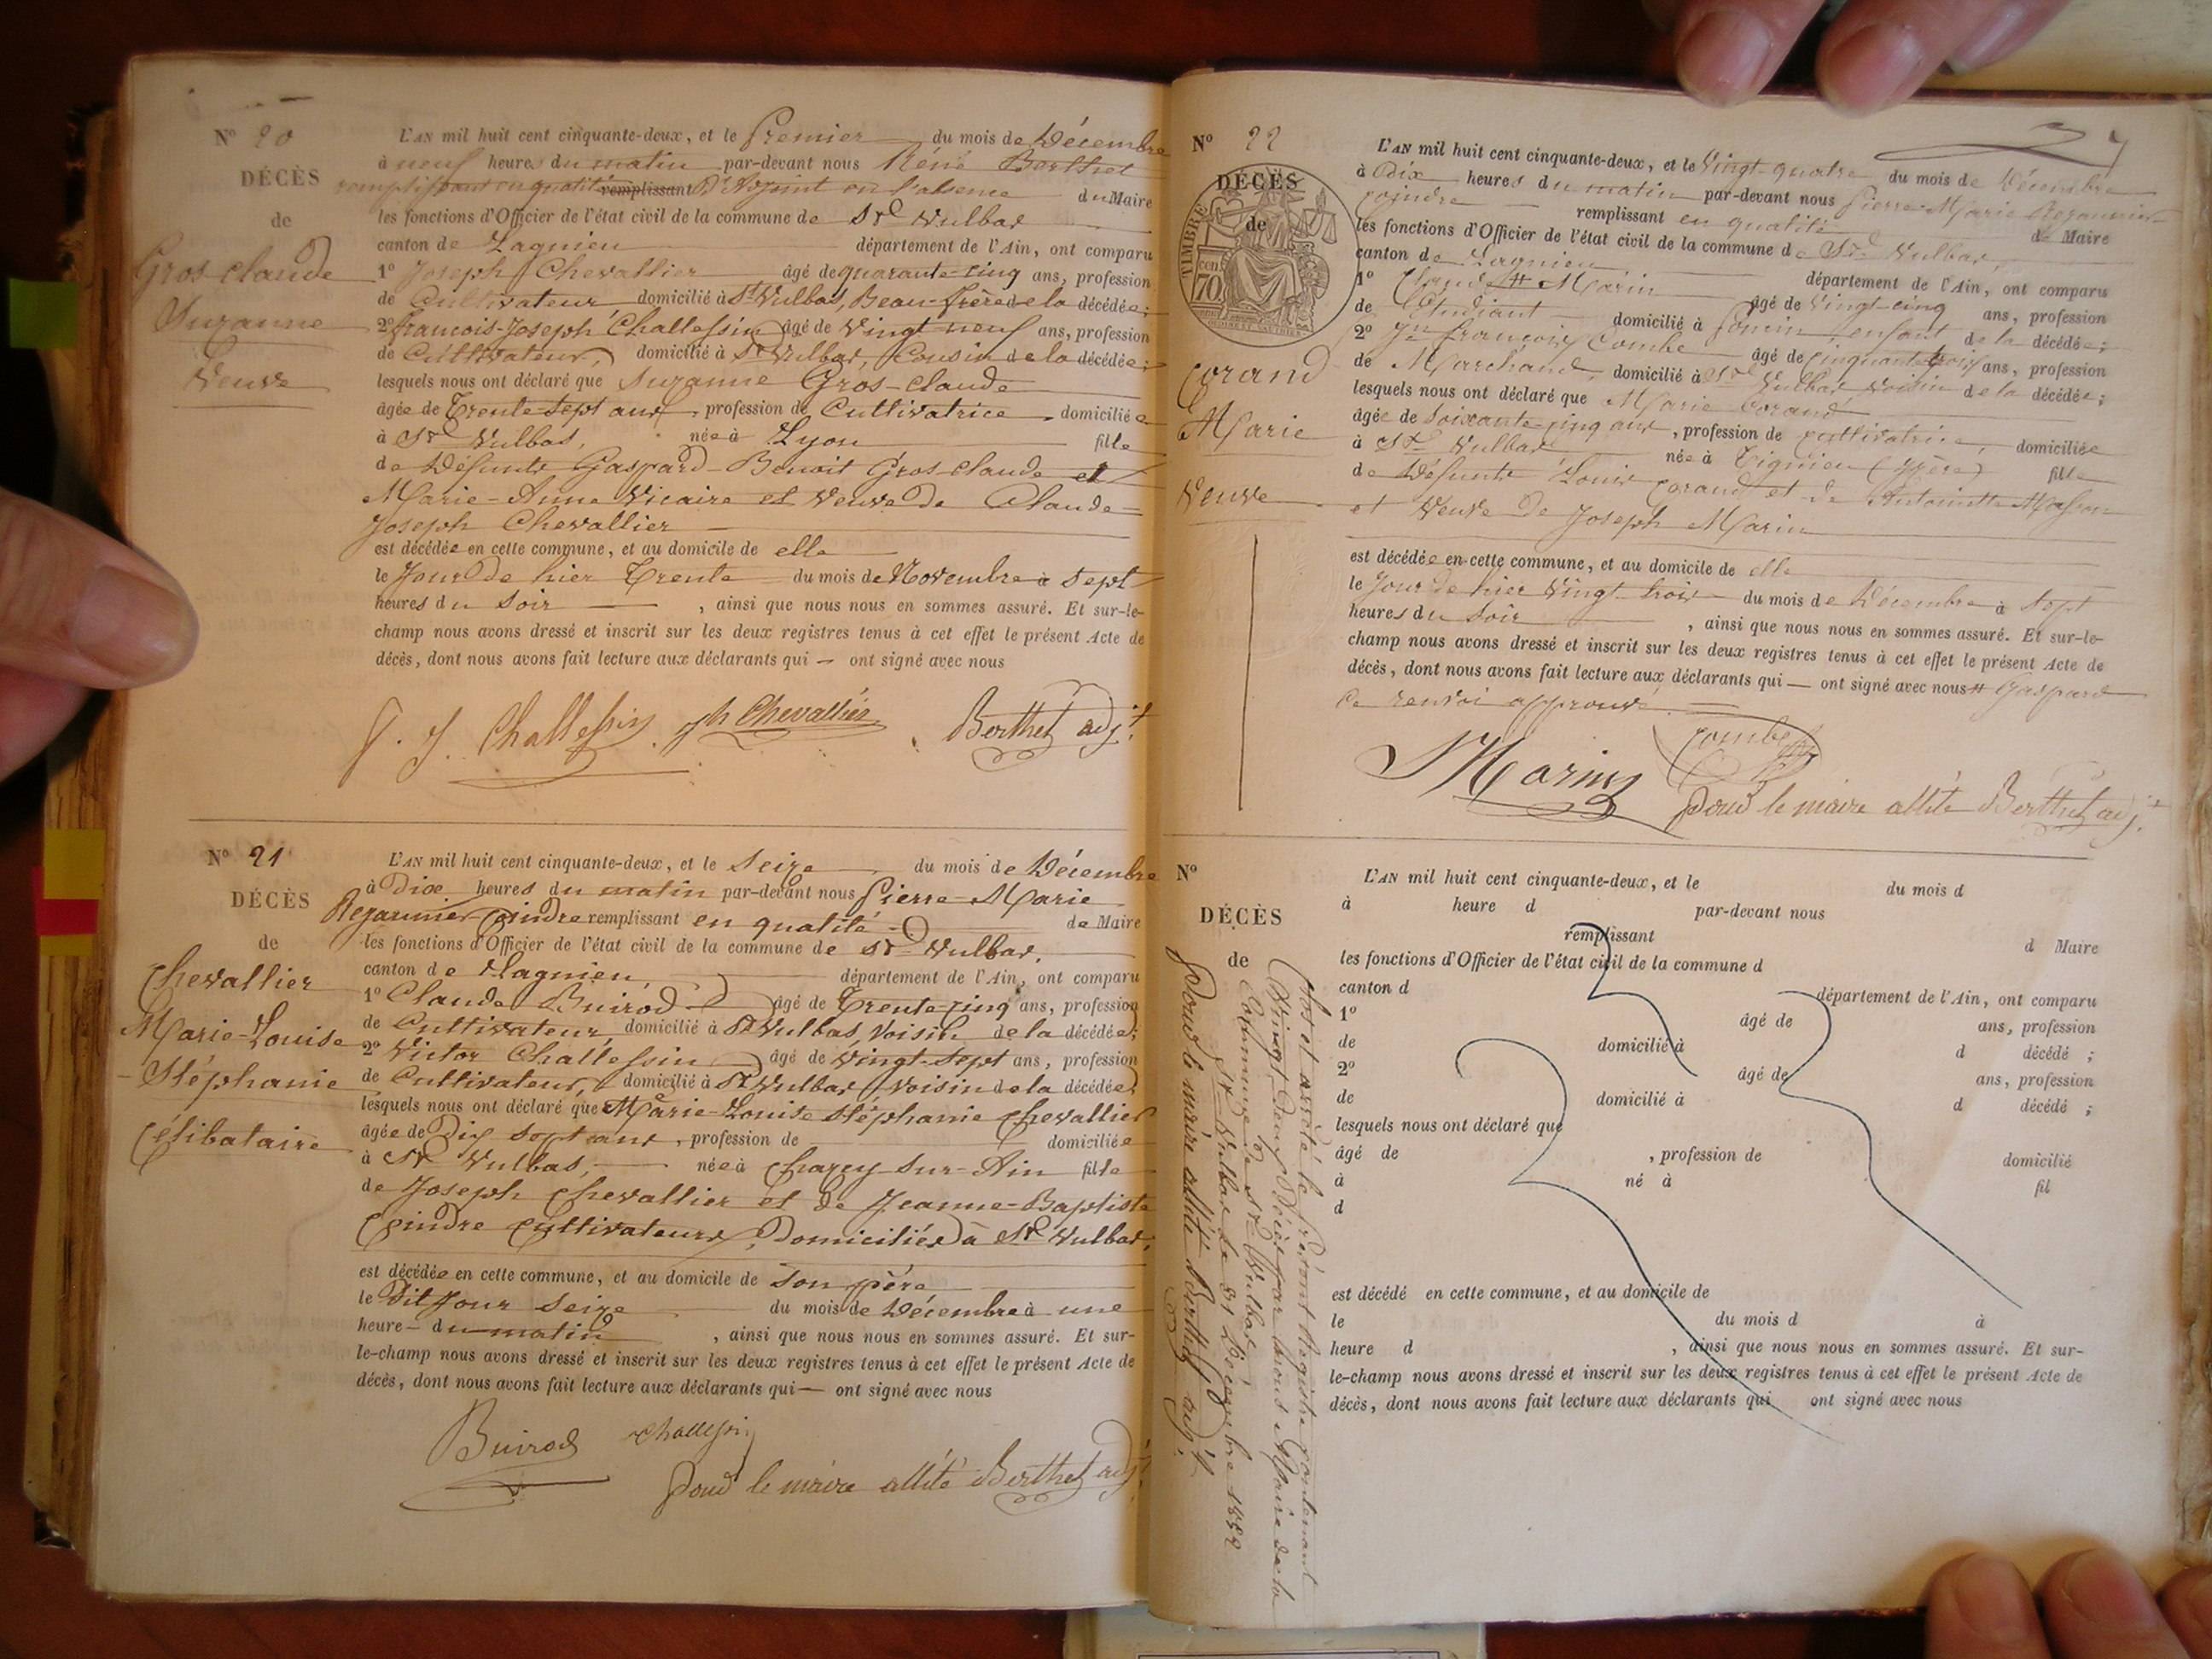 N° 20
DÉCÈS
de
Gros-claude
Suzanne
Veuve
L'AN mil huit cent cinquante-deux, et le Premier du mois de Décembre
à neuf heures du matin par-devant nous Réné Berthet
remplissant en qualité remplissant d'Adjoint en l'absence du Maire
les fonctions d'Officier de l'état civil de la commune de St Vulbas
canton de Lagnieu département de l'Ain, ont comparu
1° Joseph Chevallier âgé de quarante-cinq ans, profession
de Cultivateur domicilié à St Vulbas, Beau-frère de la décédée;
2° françois-Joseph Challessin âgé de Vingt neuf ans, profession
de Cultivateur, domicilié à St Vulbas, Cousin de la décédée;
lesquels nous ont déclaré que Suzanne Gros-claude
âgée de Trente-sept ans, profession de Cultivatrice domiciliée
à St Vulbas, née à Lyon fille
de Défunts Gaspard-Benoit Gros-claude et
Marie-Anne Vicaire et Veuve de Claude-
Joseph Chevallier
est décédée en cette commune, et au domicile de elle
le Jour de hier Trente du mois de Novembre à sept
heures du soir, ainsi que nous nous en sommes assuré. Et sur-le-
champ nous avons dressé et inscrit sur les deux registres tenus à cet effet le présent Acte de
décès, dont nous avons fait lecture aux déclarants qui — ont signé avec nous
F. J. Challessin Jh Chevallier Berthet adjt
N° 21
DÉCÈS
de
Chevallier
Marie-Louise
Stéphanie
Célibataire
L'AN mil huit cent cinquante-deux, et le Seize du mois de Décembre
à Dix heures du matin par-devant nous Pierre-Marie
Rejaunier-Coindre remplissant en qualité de Maire
les fonctions d'Officier de l'état civil de la commune de St Vulbas,
canton de Lagnieu, département de l'Ain, ont comparu
1° Claude Buirod âgé de Trente-cinq ans, profession
de Cultivateur, domicilié à St Vulbas, Voisin de la décédée;
2° Victor Challessin âgé de Vingt-sept ans, profession
de Cultivateur, domicilié à St Vulbas Voisin de la décédée
lesquels nous ont déclaré que Marie-Louise Stéphanie Chevallier
âgée de Dix sept ans, profession de domiciliée
à St Vulbas, née à Charey-Sur-Ain fille
de Joseph Chevallier et de Jeanne-Baptiste
Coindre Cultivateurs, Domiciliés à St Vulbas,
est décédée en cette commune, et au domicile de son père
le Dit Jour Seize du mois de Décembre à une
heure du matin, ainsi que nous nous en sommes assuré. Et sur-
le-champ nous avons dressé et inscrit sur les deux registres tenus à cet effet le présent Acte de
décès, dont nous avons fait lecture aux déclarants qui — ont signé avec nous
Buirod Challessin
Pour le maire allité Berthet adjt
N° 22
DÉCÈS
de
TIMBRE
70 cen
Corand
Marie
Veuve
L'AN mil huit cent cinquante-deux, et le Vingt-quatre du mois de Décembre
à Dix heures du matin par-devant nous Pierre-Marie Rejaunier-
Coindre remplissant en qualité de Maire
les fonctions d'Officier de l'état civil de la commune de St Vulbas,
canton de Lagnieu département de l'Ain, ont comparu
1° Claude # Marin âgé de Vingt-cinq ans, profession
de Etudiant domicilié à enfant de la décédée;
2° Jn françois Combe âgé de Cinquante trois ans, profession
de Marchand, domicilié à St Vulbas, Voisin de la décédée;
lesquels nous ont déclaré que Marie Corand
âgée de Soixante-cinq ans, profession de cultivatrice, domiciliée
à St Vulbas née à Tignieu (Isère) fille
de Défunts Louis Corand et de Antoinette Masson
et Veuve de Joseph Marin
est décédée en cette commune, et au domicile de elle
le Jour de hier Vingt-trois du mois de Décembre à Sept
heures du Soir, ainsi que nous nous en sommes assuré. Et sur-le-
champ nous avons dressé et inscrit sur les deux registres tenus à cet effet le présent Acte de
décès, dont nous avons fait lecture aux déclarants qui — ont signé avec nous # Gaspard
Ce renvoi approuvé
Marin Combe
Pour le maire allité Berthet adjt
N°
DÉCÈS
de
L'AN mil huit cent cinquante-deux, et le du mois d
à heure d par-devant nous
remplissant d Maire
les fonctions d'Officier de l'état civil de la commune d
canton d département de l'Ain, ont comparu
1° âgé de ans, profession
de domicilié à d décédé ;
2° âgé de ans, profession
de domicilié à d décédé ;
lesquels nous ont déclaré que
âgé de , profession de domicilié
à né à fil
d
est décédé en cette commune, et au domicile de
le du mois d à
heure d , ainsi que nous nous en sommes assuré. Et sur-
le-champ nous avons dressé et inscrit sur les deux registres tenus à cet effet le présent Acte de
décès, dont nous avons fait lecture aux déclarants qui ont signé avec nous
Clos et arrêté le présent Registre contenant
Vingt-deux Décès par nous Maire de la
Commune de St Vulbas,
St Vulbas le 31 Décembre 1852
Pour le maire allité Berthet adjt